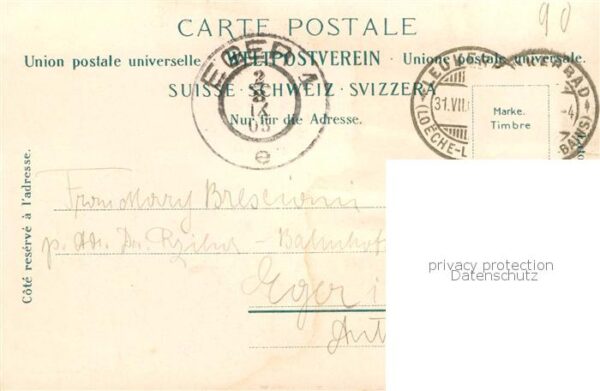 CARTE POSTALE
90
Union postale universelle - WELTPOSTVEREIN - Unione postale universale.
SUISSE · SCHWEIZ · SVIZZERA
Nur für die Adresse.
EGER 1
2
8
IX
03
e
LEUKERBAD
31.VII.
-4
(LOÈCHE-L BAINS)
Marke.
Timbre
Côté resérvé à l'adresse.
Frau Mary Bresciani
p. Adr. Dr. - Bahnhof
Eger i
privacy protection
Datenschutz